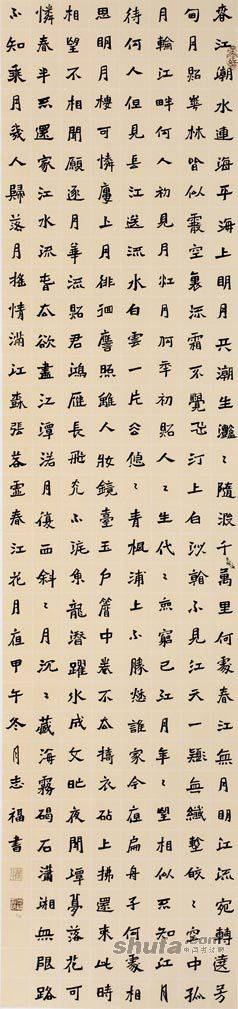 春江潮水連海平海上明月共潮生灔〻隨波千萬里何處春江無月明江流宛轉遶芳
甸月照華林皆似霰空裏流霜不覺飛汀上白沙看不見江天一無纖塵皎〻空中孤
月輪江畔何人初見月江月何年初照人〻生代〻無窮已江月年〻望相似不知江月
待何人但見長江送流水白雲一片去悠〻青楓浦上不勝愁誰家今夜扁舟子何處相
思明月樓可憐樓上月徘徊應照離人妝鏡臺玉戶簾中卷不去擣衣砧上拂還來此時
相望不相聞願逐月華流照君鴻雁長飛光不度魚龍潛躍水成文昨夜閒潭夢落花可
憐春半不還家江水流春去欲盡江潭落月復西斜〻月沉〻藏海霧碣石瀟湘無限路
不知乘月幾人歸落月搖情滿江樹張若虛春江花月夜甲午冬月志福書
shufa.com